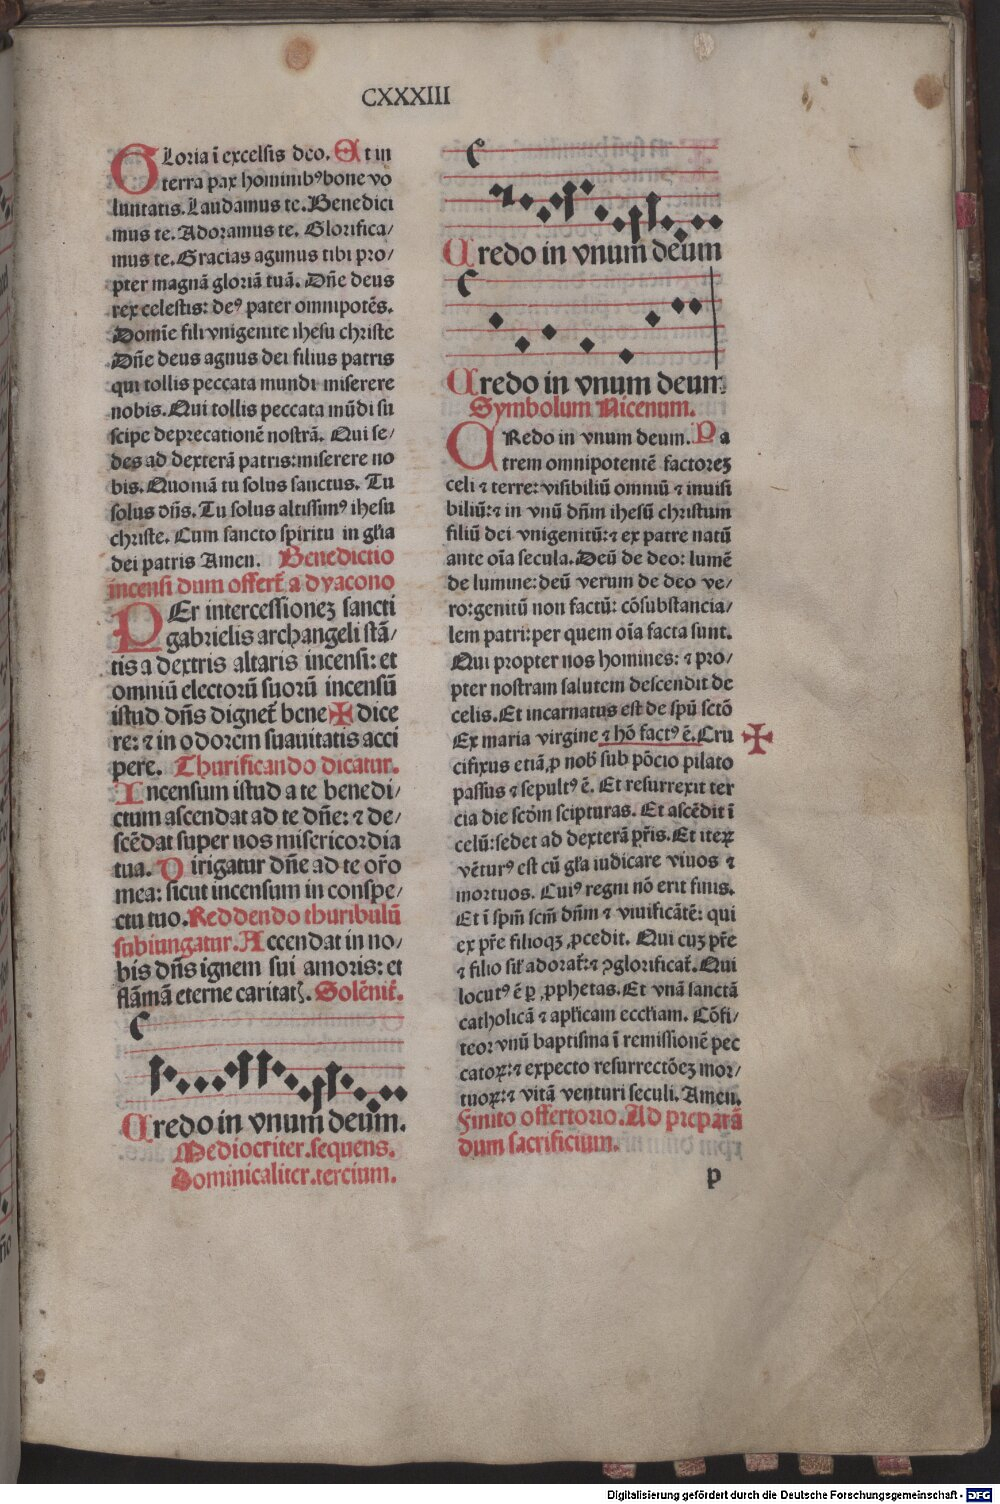 CXXXIII
GLoria ī excelsis deo. Et in
terra pax hominibꝰ bone vo
luntatis. Laudamus te. Benedici
mus te. Adoramus te. Glorifica/
mus te. Gracias agimus tibi pro/
pter magnā gloriā tuā. Dn̄e deus
rex celestis: deꝰ pater omnipotēs.
Domīe fili vnigenite ihesu christe
Dn̄e deus agnus dei filius patris
qui tollis peccata mundi miserere
nobis. Qui tollis peccata mūdi su
scipe deprecationē nostrā. Qui se/
des ad dexterā patris: miserere no
bis. Quoniā tu solus sanctus. Tu
solus dn̄s. Tu solus altissimꝰ ihesu
christe. Cum sancto spiritu in gl'ia
dei patris Amen. Benedictio
incensi dum offert̄ a dyacono
PEr intercessionez sancti
gabrielis archangeli stā/
tis a dextris altaris incensi: et
omniū electorū suorū incensū
istud dn̄s dignet̄ bene✠dice
re: ⁊ in odorem suauitatis acci
pere. Thurificando dicatur.
Incensum istud a te benedi/
ctum ascendat ad te dn̄e: ⁊ de/
scēdat super nos misericordia
tua. Dirigatur dn̄e ad te or̄o
mea: sicut incensum in conspe/
ctu tuo. Reddendo thuribulū
subiungatur. Accendat in no/
bis dn̄s ignem sui amoris: et
flāmā eterne caritatꝭ. Solēnit̄.
Credo in vnum deum.
Mediocriter. sequens.
Dominicaliter. tercium.
Credo in vnum deum
Credo in vnum deum
Symbolum Nicenum.
CRedo in vnum deum. Pa
trem omnipotentē factorez
celi ⁊ terre: visibiliū omniū ⁊ inuisi
biliū: ⁊ in vnū dn̄m ihesū christum
filiū dei vnigenitū: ⁊ ex patre natū
ante oīa secula. Deū de deo: lumē
de lumine: deū verum de deo ve/
ro: genitū non factū: cōsubstancia/
lem patri: per quem oīa facta sunt.
Qui propter nos homines: ⁊ pro/
pter nostram salutem descendit de
celis. Et incarnatus est de spū sctō
Ex maria virgine ⁊ hō factꝰ ē. Cru ✠
cifixus etiā ꝓ nob̄ sub pōcio pilato
passus ⁊ sepultꝰ ē. Et resurrexit ter
cia die scd̄m scipturas. Et ascēdit ī
celū: sedet ad dexterā pr̄is. Et iteꝝ
vētur̄ꝰ est cū gl'a iudicare viuos ⁊
mortuos. Cuiꝰ regni nō erit finis.
Et ī spm̄ scm̄ dn̄m ⁊ viuificātē: qui
ex pr̄e filioqꝫ ꝓcedit. Qui cuz pr̄e
⁊ filio sil' adorat̄: ⁊ ꝯglorificat̄. Qui
locutꝰ ē ꝑ ꝓphetas. Et vnā sanctā
catholicā ⁊ apl'icam eccl'iam. Cōfi/
teor vnū baptisma ī remissionē pec
catoꝝ: ⁊ expecto resurrectōez mor/
tuoꝝ: ⁊ vitā venturi seculi. Amen.
Finito offertorio. Ad preparā
dum sacrificium.
p
Digitalisierung gefördert durch die Deutsche Forschungsgemeinschaft - DFG